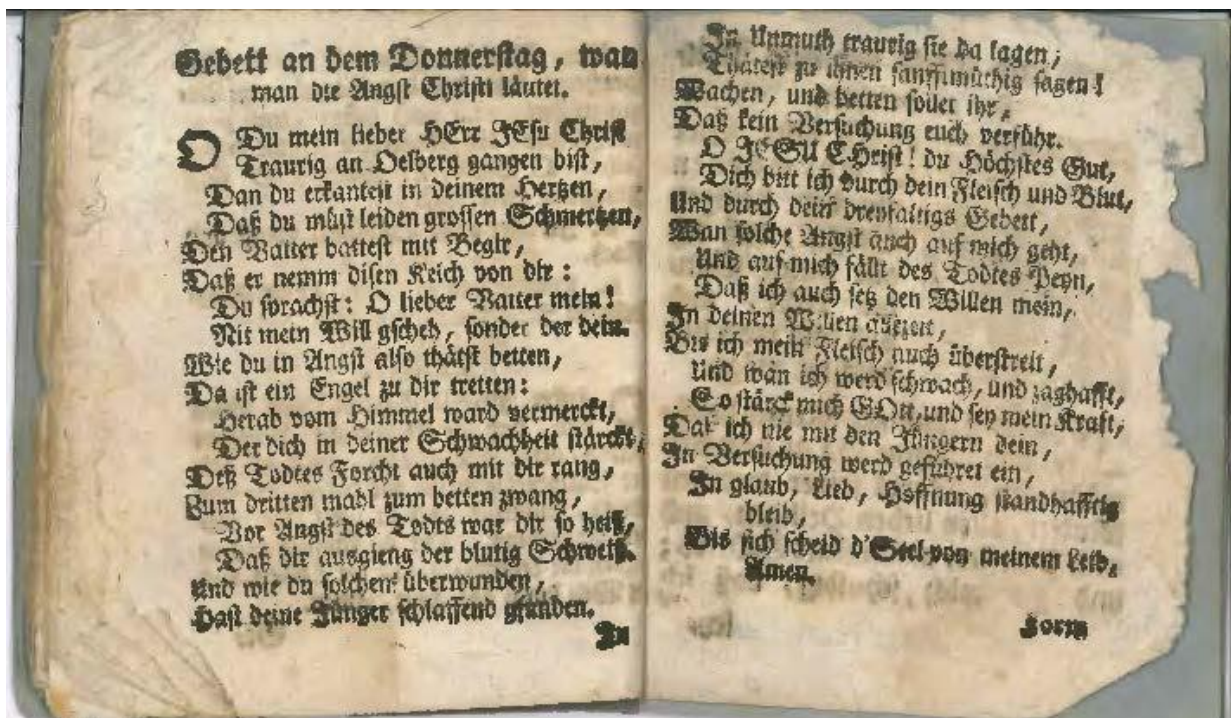 Gebett an dem Donnerstag, wan
man die Angst Christi läutet.
O Du mein lieber HErr JEsu Christ
Traurig an Oelberg gangen bist,
Dan du erkantest in deinem Hertzen,
Daß du müst leiden grossen Schmertzen,
Den Vatter battest mit Begir,
Daß er nemm disen Kelch von dir:
Du sprachst: O lieber Vatter mein!
Nit mein Will gscheh, sonder der dein.
Wie du in Angst also thätst betten,
Da ist ein Engel zu dir tretten:
Herab vom Himmel ward vermerckt,
Der dich in deiner Schwachheit stärckt,
Deß Todtes Forcht auch mit dir rang,
Zum dritten mahl zum betten zwang,
Vor Angst des Todts war dir so heiß,
Daß dir ausgieng der blutig Schweiß.
Und wie du solchen überwunden,
Hast deine Jünger schlaffend gfunden.
In
In Unmuth traurig sie da lagen;
Thätest zu ihnen sanfftmüthig sagen!
Wachen, und betten sollet ihr,
Daß kein Versuchung euch verführ.
O JESU CHrist! du Höchstes Gut,
Dich bitt ich durch dein Fleisch und Blut,
Und durch dein dreyfaltigs Gebett,
Wan solche Angst auch auf mich geht,
Und auf mich fällt des Todtes Peyn,
Daß ich auch setz den Willen mein,
In deinen Willen allzeit,
Bis ich mein Fleisch auch überstreit,
Und wan ich werd schwach, und zaghafft,
So stärck mich GOtt, und sey mein Krafft,
Daß ich nie mit den Jüngern dein,
In Versuchung werd geführet ein,
In glaub, Lieb, Hoffnung standhafftig
bleib,
Bis sich scheid d'Seel von meinem Leib,
Amen.
Form